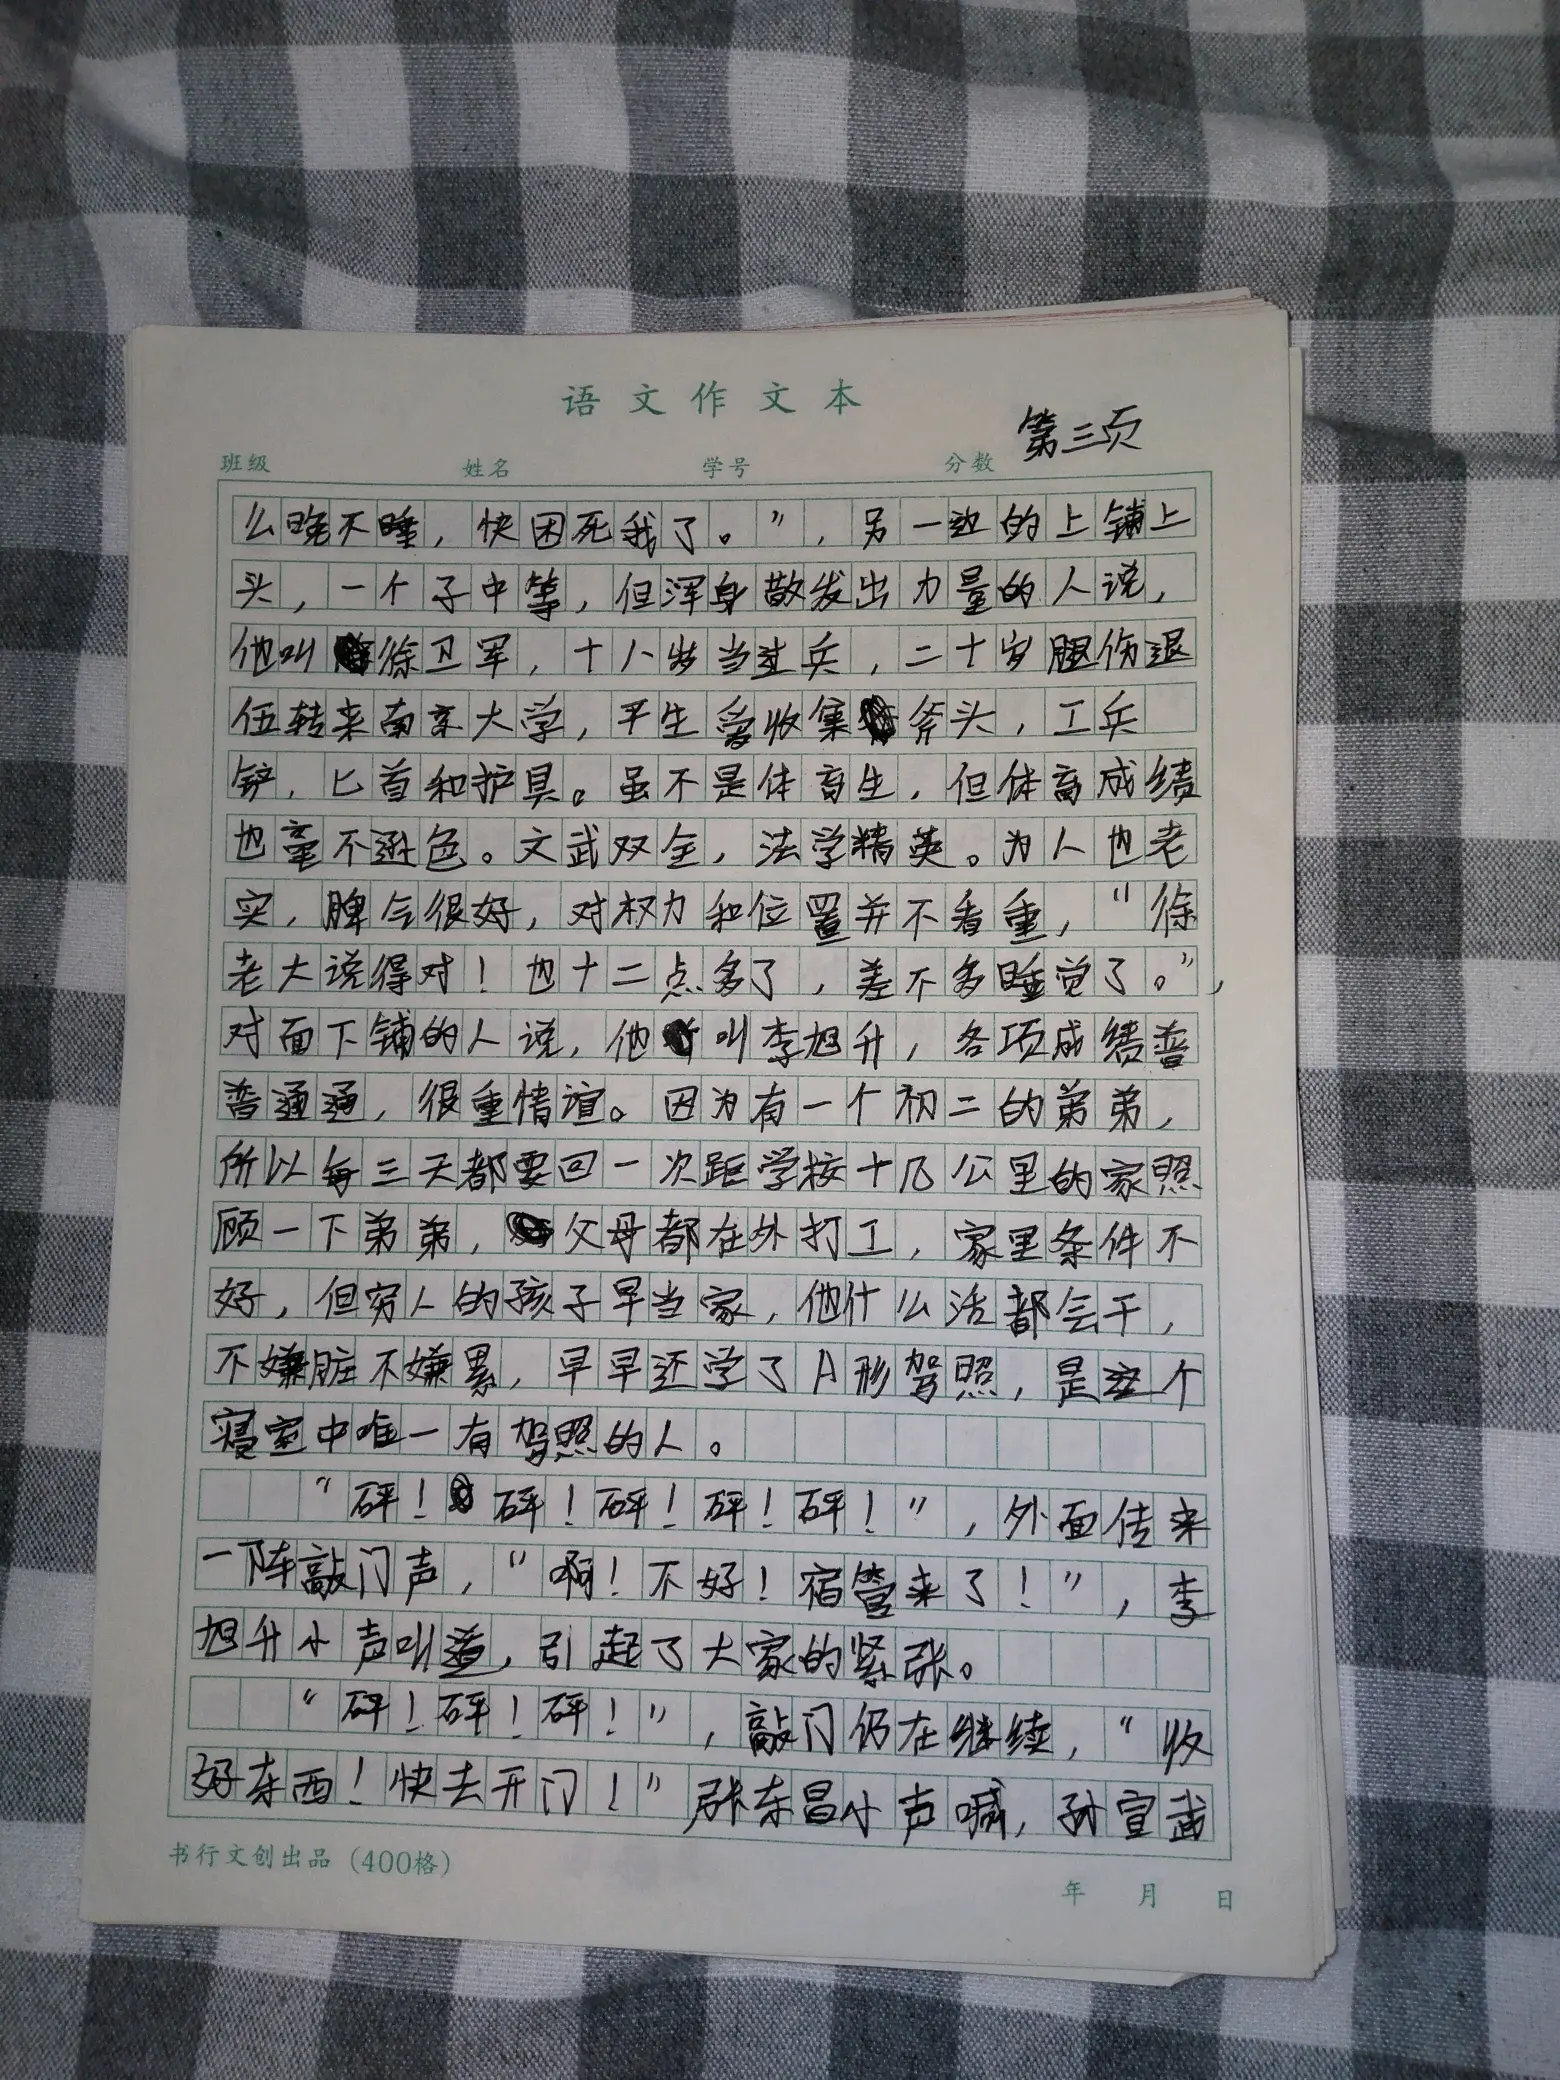 语文作文本
第三页
班级 姓名 学号 分数
么晚不睡，快困死我了。”，另一边的上铺上
头，一个子中等，但浑身散发出力量的人说，
他叫徐卫军，十八岁当过兵，二十岁腿伤退
伍转来南京大学，平生爱收集斧头，工兵
铲，匕首和护具。虽不是体育生，但体育成绩
也毫不逊色。文武双全，法学精英。为人也老
实，脾气很好，对权力和位置并不看重，“徐
老大说得对！也十二点多了，差不多睡觉了。”，
对面下铺的人说，他叫李旭升，各项成绩普
普通通，很重情谊。因为有一个初二的弟弟，
所以每三天都要回一次距学校十几公里的家照
顾一下弟弟，父母都在外打工，家里条件不
好，但穷人的孩子早当家，他什么活都会干，
不嫌脏不嫌累，早早还学了A形驾照，是这个
寝室中唯一有驾照的人。
“砰！砰！砰！砰！砰！”，外面传来
一阵敲门声，“啊！不好！宿管来了！”，李
旭升小声叫道，引起了大家的紧张。
“砰！砰！砰！”，敲门仍在继续，“收
好东西！快去开门！”张东昌小声喊，孙宣武
书行文创出品（400格）
年 月 日